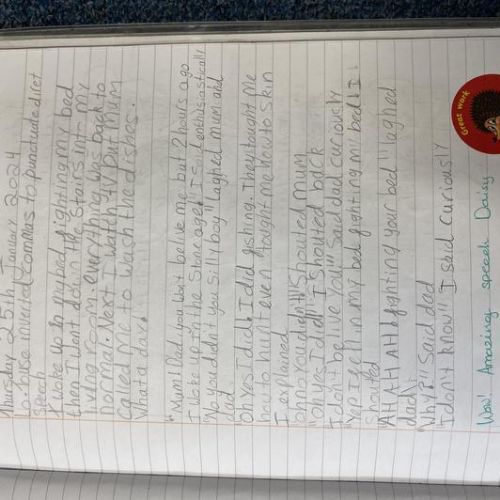 Thursday 25th January 2024
to use inverted commas to punctuate diret
Speech
I woke up in my bed fighting my bed
then I want down the Stairs into my
living room. everything was back to
normal. Next I watch TV but mum
called me to wash the dishes.
what a day.
"Mum! Dad you wont belive me but 2 hours ago
I woke up in the Stone age!" I Said enthusiastically
"No you didn't you silly boy" laughed mum and
dad.
"Oh yes I did! I did fishing. They tought me
how to hunt even tought me how to skin
I explained
"Oh no you didn't" Shouted mum
"Oh yes I did!" I shouted back
I don't be live you!" Said dad curiously
"Yep I fell in my bed fighting my bed!" I
Shouted
"AHAHAH! fighting your bed" laghed
dad
"Why?" Said dad
I don't know" I said curiously
Wow! Amazing speech Daisy
Great work